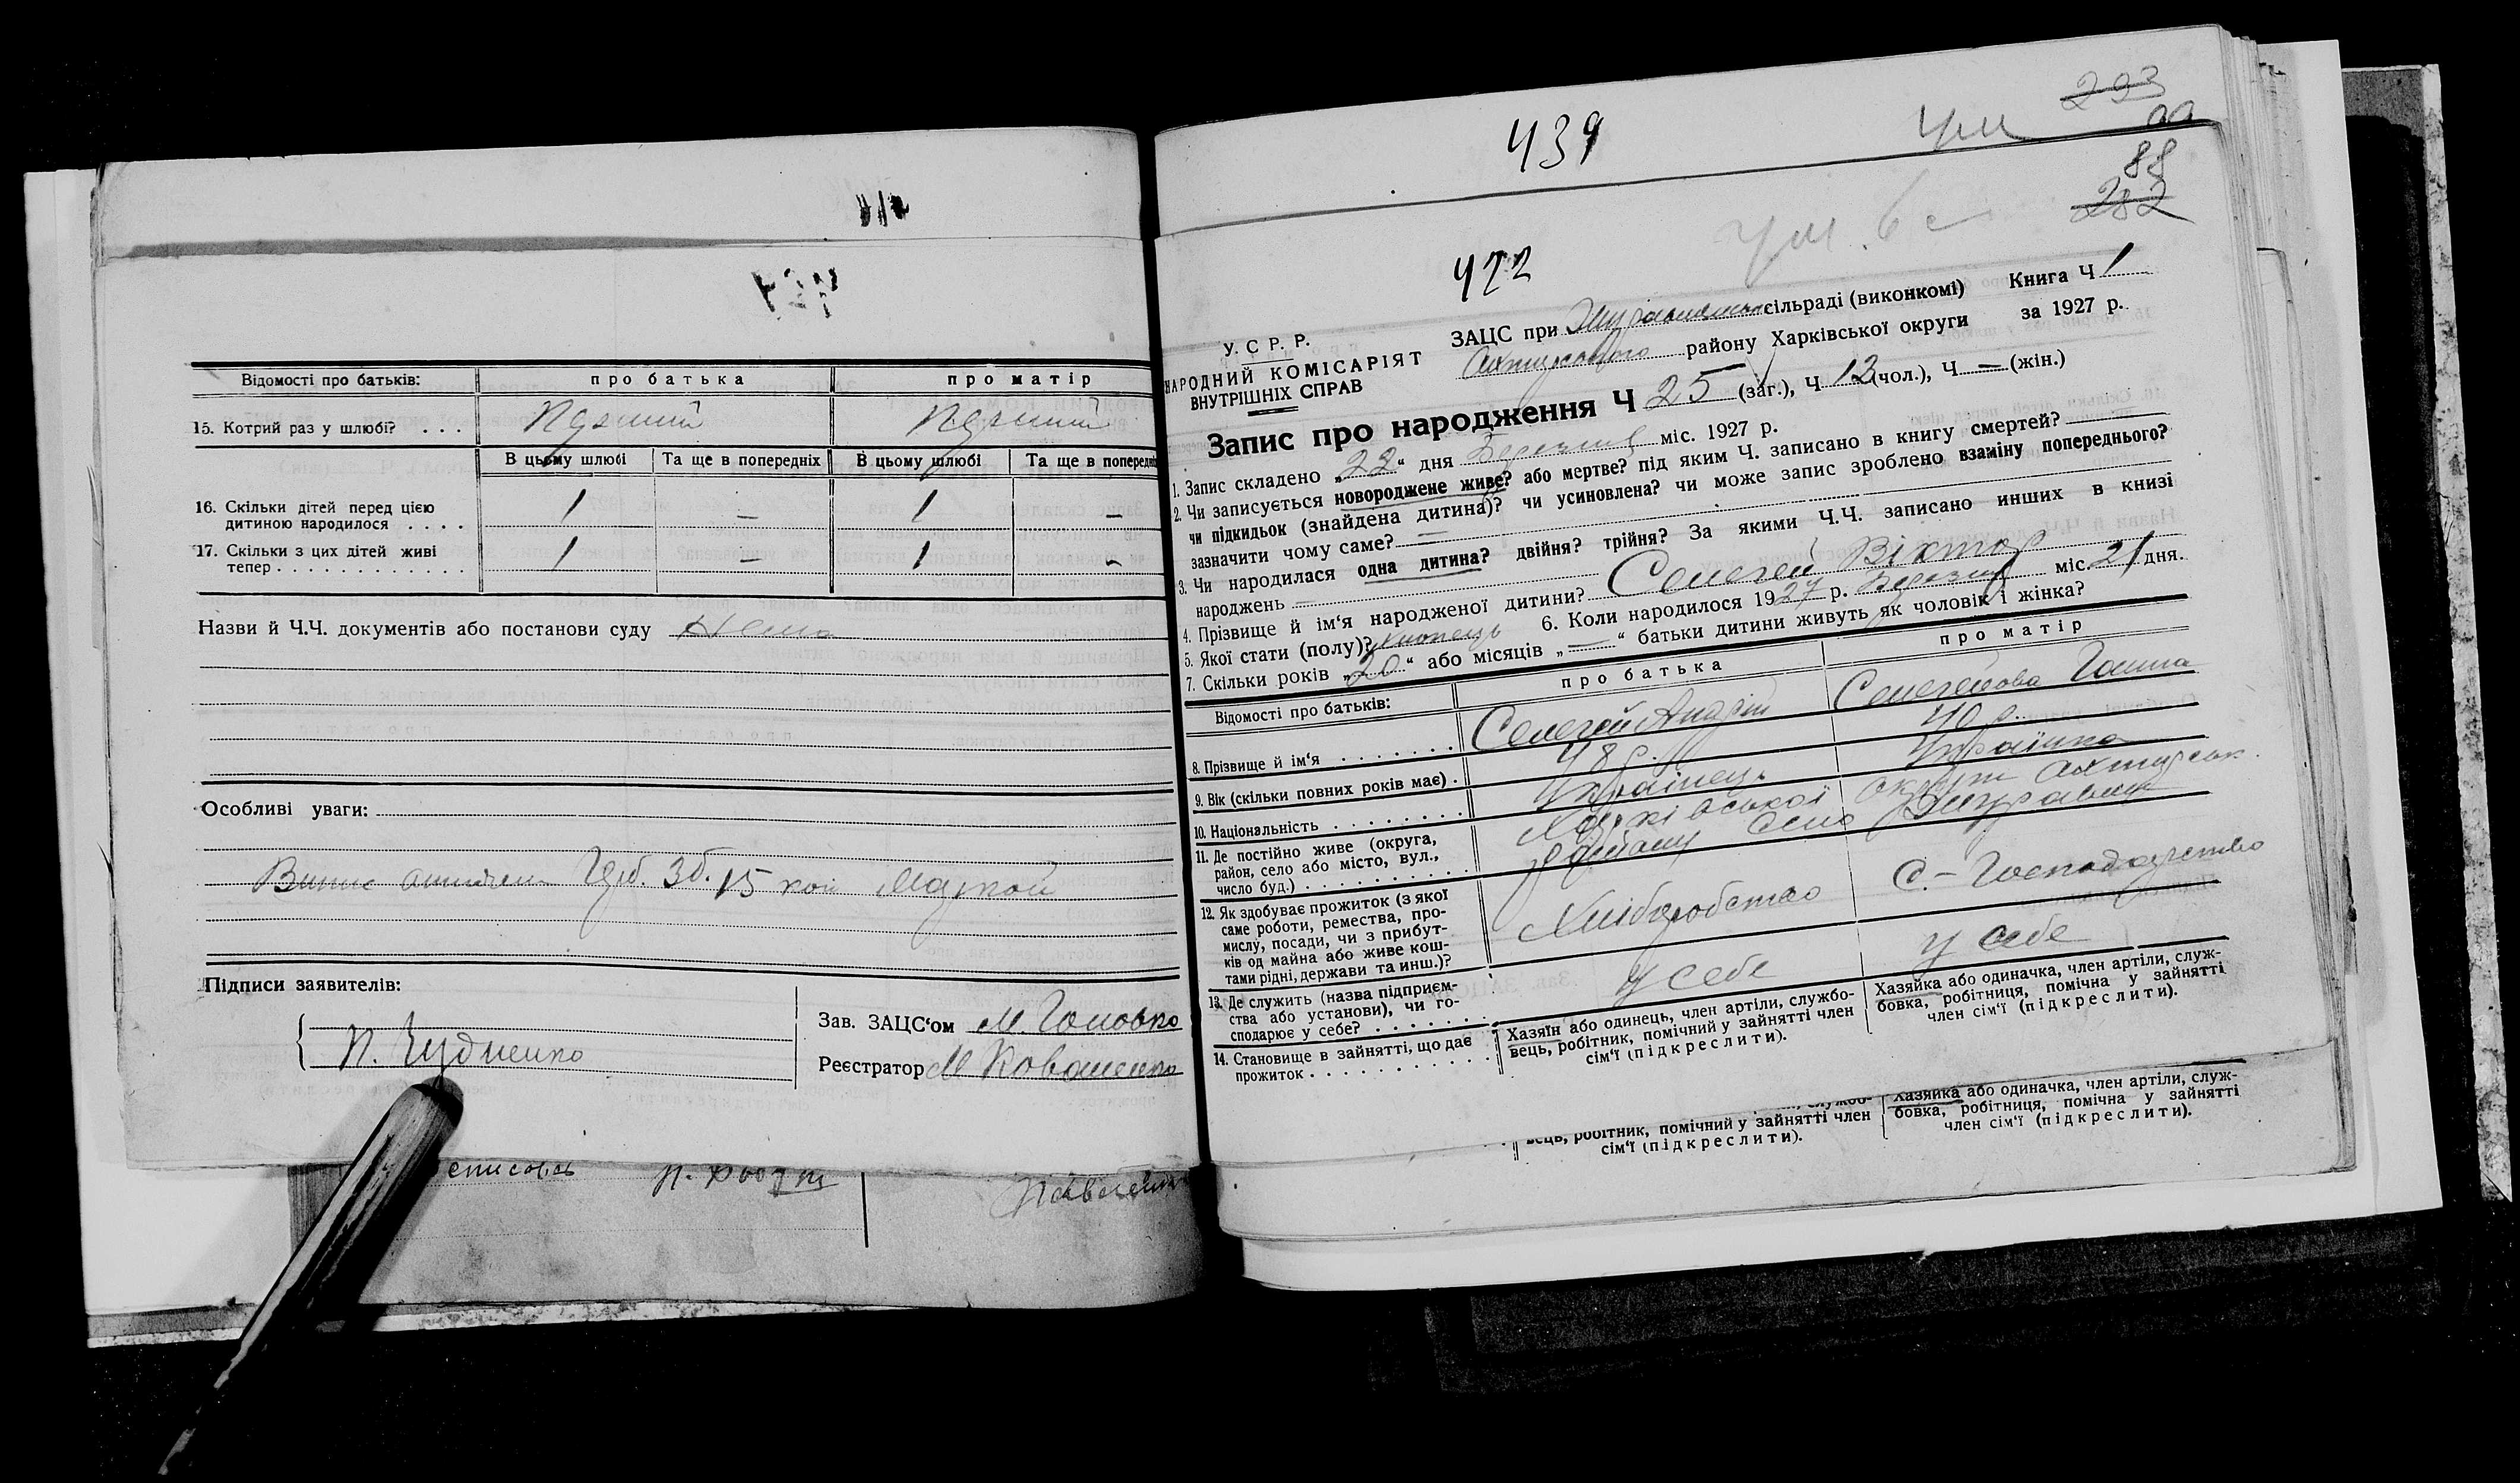 Відомості про батьків: про батька про матір
15. Котрий раз у шлюбі? . . . Перший Перший
В цьому шлюбі Та ще в попередніх В цьому шлюбі Та ще в попередні
16. Скільки дітей перед цією
дитиною народилося . . . . 1 — 1 —
17. Скільки з цих дітей живі
тепер . . . . . . . . . . . . . 1 — 1 -
Назви й Ч.Ч. документів або постанови суду Нема
Особливі уваги:
Гер. Зб. 15 коп маркой
Підписи заявителів:
Зав. ЗАЦС'ом М. Головко
Реєстратор М Коваленко
439
293
88
282
422
У. С Р. Р.
НАРОДНИЙ КОМІСАРІЯТ
ВНУТРІШНІХ СПРАВ
ЗАЦС при сільраді (виконкомі) Книга Ч 1
району Харківської округи за 1927 р.
Запис про народження Ч 25 (заг.), Ч 12 (чол.), Ч — (жін.)
1. Запис складено „22“ дня Березня міс. 1927 р.
2. Чи записується новороджене живе? або мертве? під яким Ч. записано в книгу смертей?
чи підкидьок (знайдена дитина)? чи усиновлена? чи може запис зроблено взаміну попереднього?
зазначити чому саме? —
3. Чи народилася одна дитина? двійня? трійня? За якими Ч.Ч. записано инших в книзі
народжень —
4. Прізвище й ім'я народженої дитини? Селегей Віктор
5. Якої стати (полу)? хлопець 6. Коли народилося 1927 р. Березня міс. 21 дня.
7. Скільки років „20“ або місяців „—“ батьки дитини живуть як чоловік і жінка?
Відомості про батьків: про батька про матір
8. Прізвище й ім'я . . . . . . . Селегей Андрій Селегейова Ганна
9. Вік (скільки повних років має) . 48 р. 40 р.
10. Національність . . . . . . . . Українець Українка
11. Де постійно живе (округа, Харківської округи
район, село або місто, вул., району село
число буд.) . . . . . . . . . .
12. Як здобуває прожиток (з якої
саме роботи, ремества, про-
мислу, посади, чи з прибут-
ків од майна або живе кош-
тами рідні, держави та инш.)? Хліборобство С.-Господарство
13. Де служить (назва підприєм-
ства або установи), чи го-
сподарює у себе? . . . . . . . у себе у себе
14. Становище в зайнятті, що дає
прожиток . . . . . . . . . . .
Хазяїн або одинець, член артіли, службо-
вець, робітник, помічний у зайнятті член
сім'ї (підкреслити).
Хазяйка або одиначка, член артіли, служ-
бовка, робітниця, помічна у зайнятті
член сім'ї (підкреслити).
вець, робітник, помічний у зайнятті член
сім'ї (підкреслити).
Хазяйка або одиначка, член артіли, служ-
бовка, робітниця, помічна у зайнятті
член сім'ї (підкреслити).